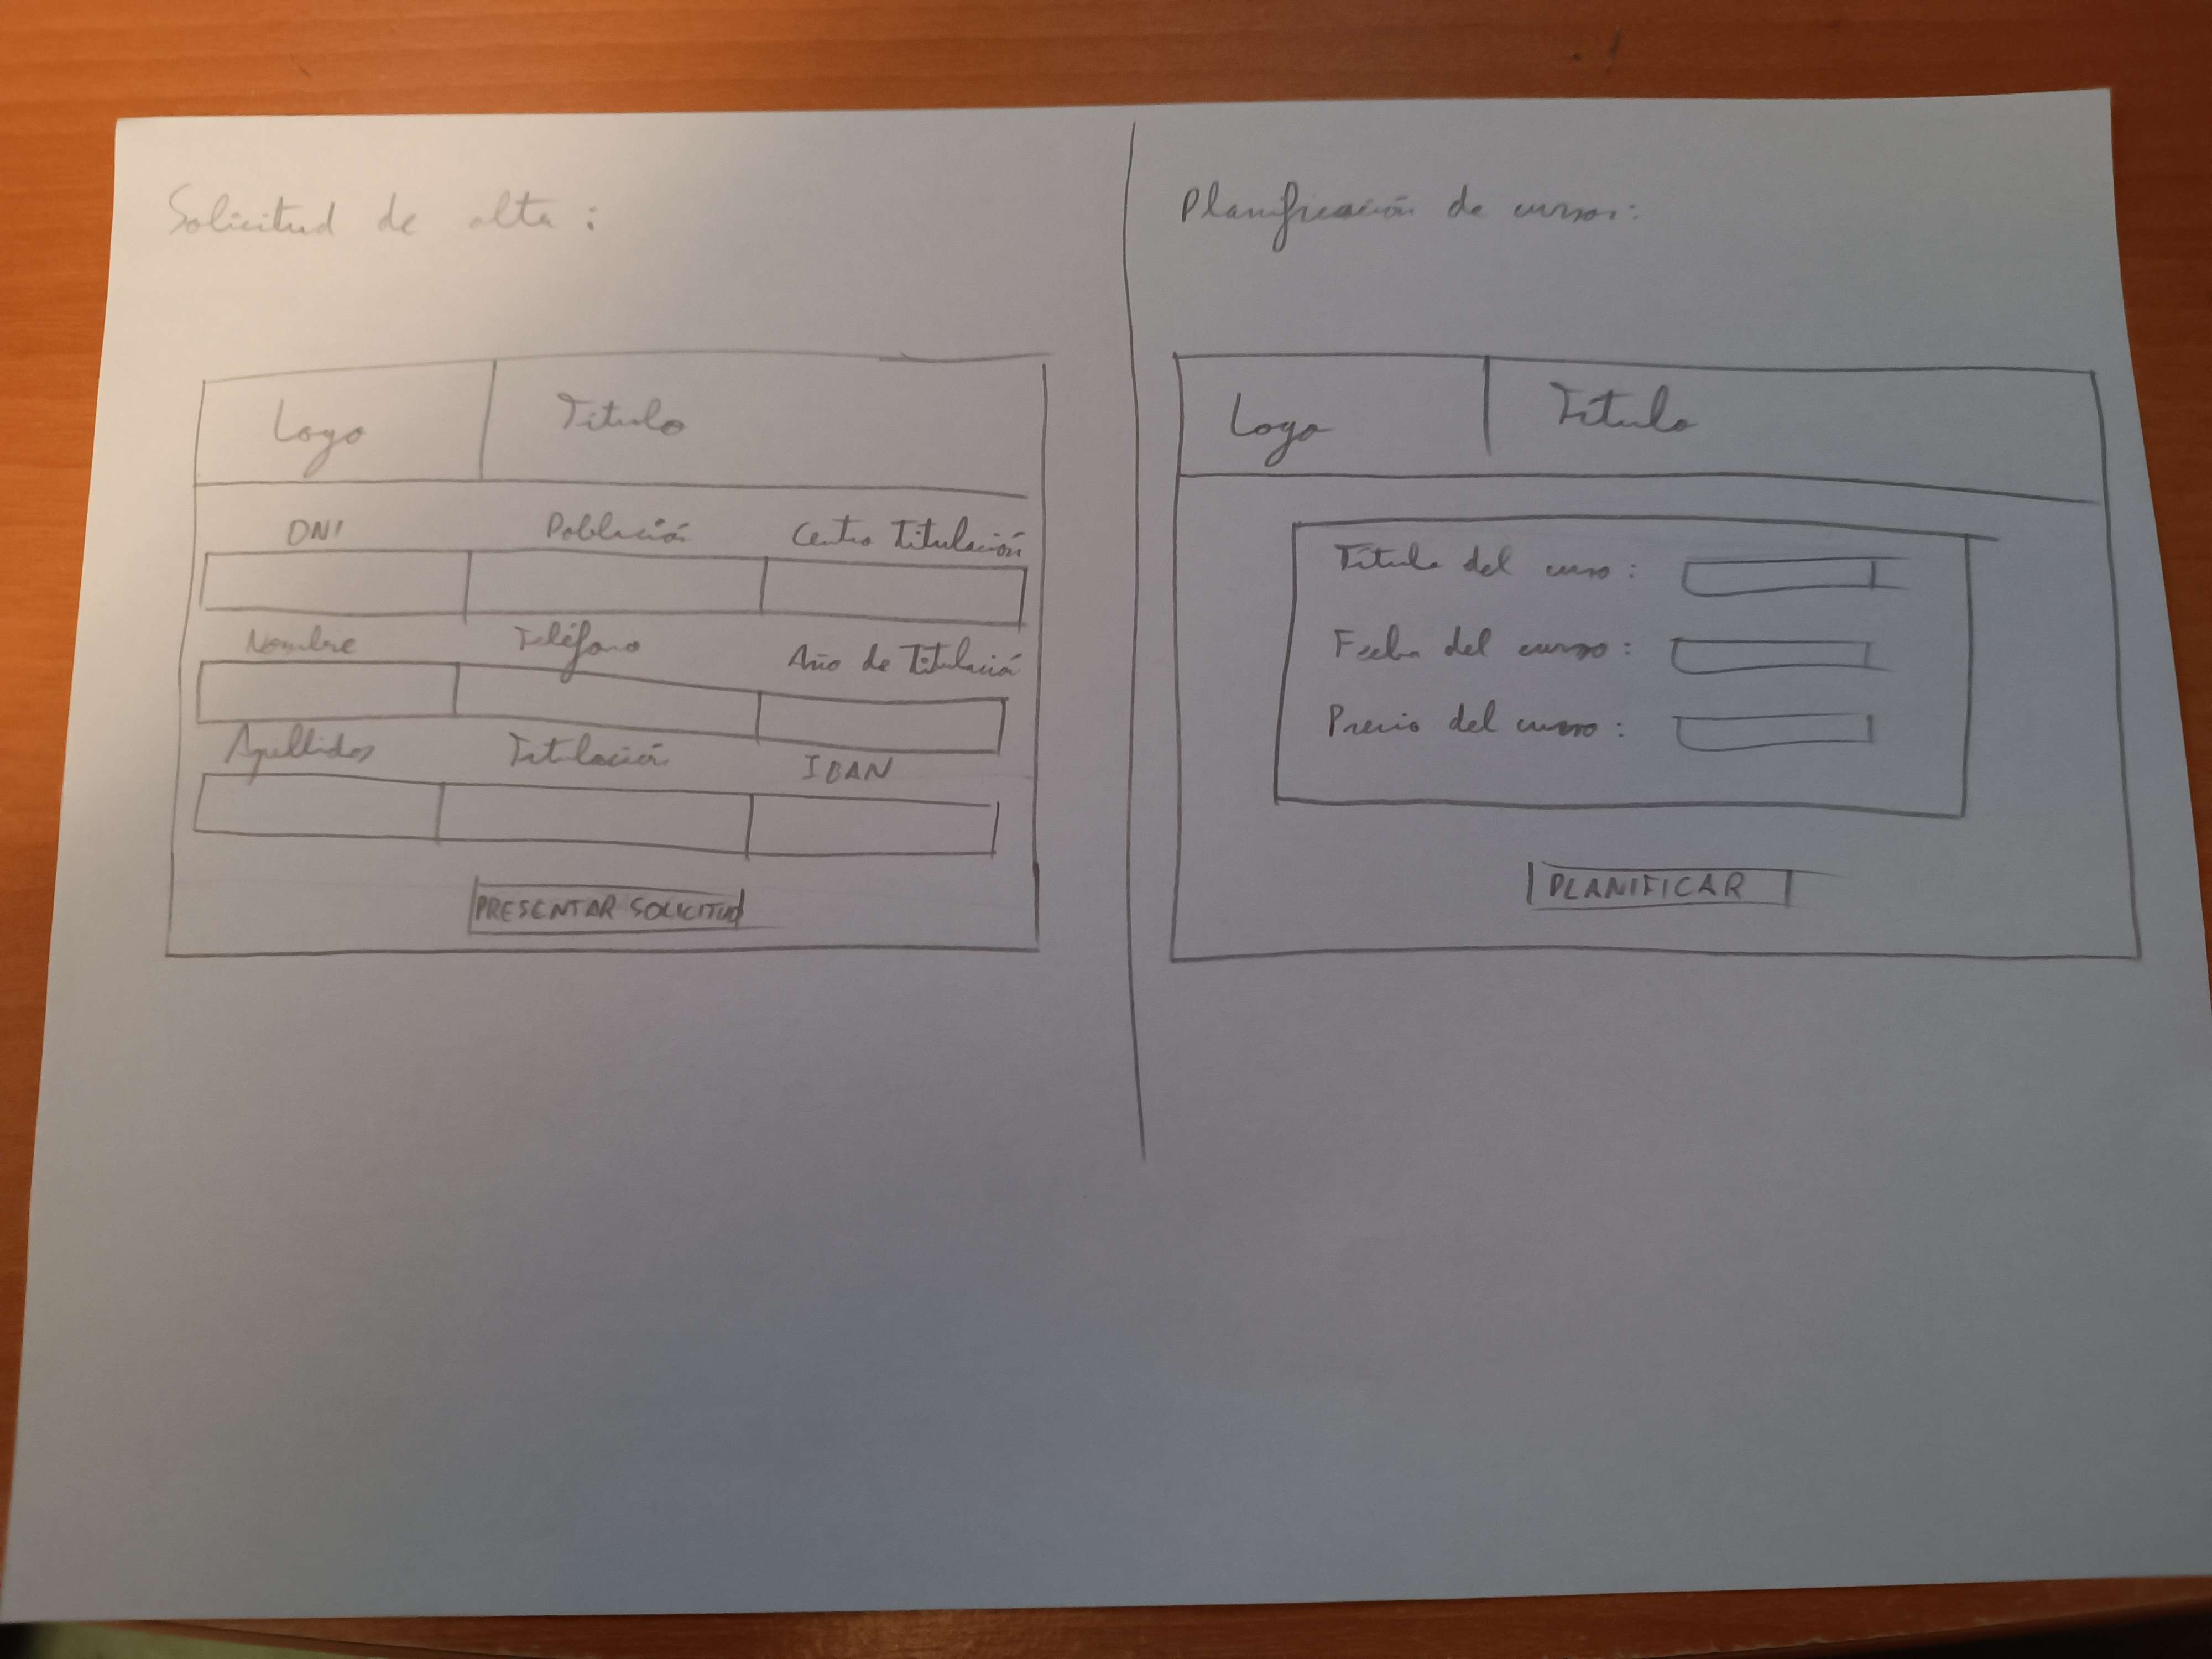 Solicitud de alta:
Logo
Título
DNI
Población
Centro Titulación
Nombre
Teléfono
Año de Titulación
Apellidos
Titulación
IBAN
PRESENTAR SOLICITUD
Planificación de cursos:
Logo
Título
Título del curso:
Fecha del curso:
Precio del curso:
PLANIFICAR